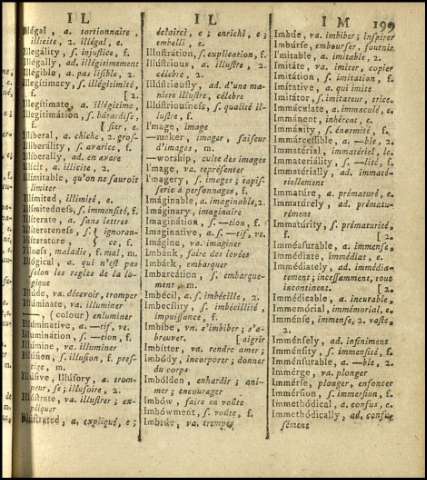 I L
I L
I M 199
Illégal, a. tortionnaire,
illicite, 2. illégal, e.
Illegálity, s. injustice, f.
Illégally, ad. illégitimement
Illégible, a. pas lisible, 2.
Illegítimacy, s. illégitimité,
[2.
Illegítimate, a. illégitime,
Illegitimátion, s. bâtardise,
[ser, e.
Illíberal, a. chiche, 2. gros-
Illiberálity, s. avarice, f.
Illíberally, ad. en avare
Illícit, a. illicite, 2.
Illímitable, qu'on ne sauroit
limiter
Illímited, illimité, e.
Illímitedness, s. immensité, f.
Illíterate, a. sans lettres
Illíterateness, s. ignoran-
Illíterature, ce, f.
Illness, maladie, f. mal, m.
Illógical, a. qui n'est pas
selon les regles de la lo-
gique
Illúde, va. décevoir, tromper
Illúminate, va. illuminer
——, (colour) enluminer
Illúminative, a. —tif, ve.
Illuminátion, s. —tion, f.
Illúmine, va. illuminer
Illúsion, s. illusion, f. pres-
tige, m.
Illúsive, Illúsory, a. trom-
peur, se; illusoire, 2.
Illústrate, va. illustrer; ex-
pliquer
Illústrated, a. expliqué, e;
éclairci, e; enrichi, e;
embelli, e.
Illustrátion, s. explication, f.
Illústrious, a. illustre, 2.
célebre, 2.
Illústriously, ad. d'une ma-
niere illustre, célebre
Illústriousness, s. qualité il-
lustre, f.
I'mage, image
—maker, imager, faiseur
d'images, m.
—worship, culte des images
I'mage, va. représenter
I'magery, s. images; tapis-
serie à personnages, f.
Imáginable, a. imaginable, 2.
Imáginary, imaginaire
Imaginátion, s. —tion, f.
Imáginative, a. —tif, ve.
Imágine, va. imaginer
Imbánk, faire des levées
Imbárk, embarquer
Imbarcátion, s. embarque-
ment, m.
Imbécil, a. imbécille, 2.
Imbecílity, s. imbécillité,
impuissance, f.
Imbíbe, vn. s'imbiber; s'a-
breuver. [aigrir
Imbítter, va. rendre amer;
Imbódy, incorporer; donner
du corps
Imbólden, enhardir; ani-
mer; encourager
Imbów, faire en voûte
Imbówment, s. voûte, f.
va. tremper
Imbúe, va. imbiber; inspirer
Imbúrse, embourser, fournir
I'mitable, a. imitable, 2.
Imitáte, va. imiter, copier
Imitátion, s. imitation, f.
Imitátive, a. qui imite
Imitátor, s. imitateur, trice.
Immáculate, a. immaculé, e.
Immánent, inhérent, e.
Immánity, s. énormité, f.
Immárcessible, a. —ble, 2.
Immatérial, immatériel, le.
Immateriálity, s. —lité, f.
Immatérially, ad. immaté-
riellement
Immatúre, a. prématuré, e.
Immatúrely, ad. prématu-
rément
Immatúrity, s. prématurité,
f. [2.
Imméasurable, a. immense,
Immédiate, immédiat, e.
Immédiately, ad. immédia-
ment; incessamment, tout
incontinent. [2.
Immédicable, a. incurable,
Immemórial, immémorial, e.
Imménse, immense, 2. vaste,
2.
Imménsely, ad. infiniment
Imménsity, s. immensité, f.
Immensúrable, a. —ble, 2.
Immérge, va. plonger
Immérse, plonger, enfoncer
Immérsion, s. immersion, f.
Immethódical, a. confus, e.
Immethódically, ad. confu-
sément